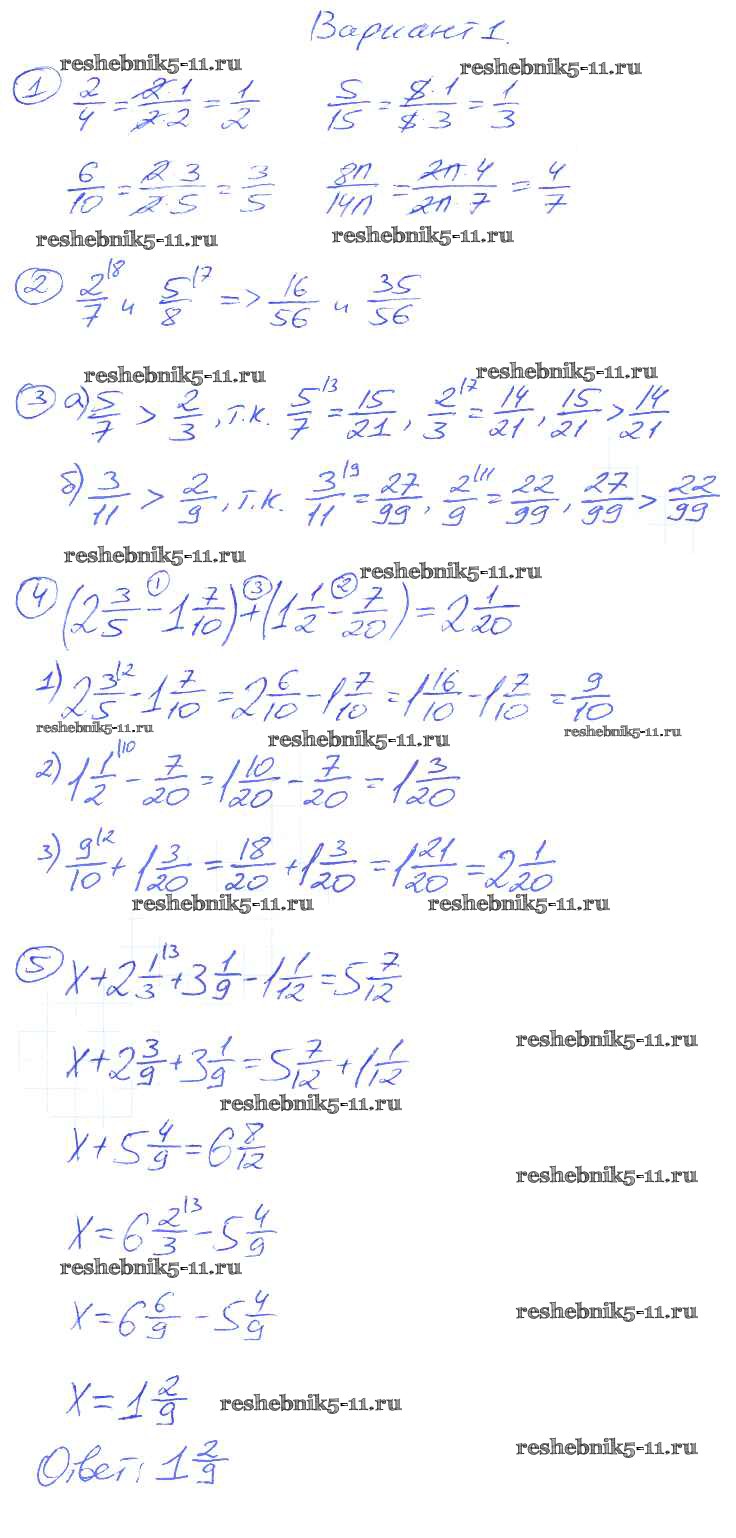 Вариант 1.
reshebnik5-11.ru reshebnik5-11.ru
① 2/4 = 2·1/2·2 = 1/2 5/15 = 5·1/5·3 = 1/3
6/10 = 2 3/2 5 = 3/5 8n/14n = 2n·4/2n·7 = 4/7
reshebnik5-11.ru reshebnik5-11.ru
② 2/7 |8 и 5/8 |7 => 16/56 и 35/56
reshebnik5-11.ru reshebnik5-11.ru
③ а) 5/7 > 2/3, т.к. 5/7 |3 = 15/21, 2/3 |7 = 14/21, 15/21 > 14/21
б) 3/11 > 2/9, т.к. 3/11 |9 = 27/99, 2/9 |11 = 22/99, 27/99 > 22/99
reshebnik5-11.ru reshebnik5-11.ru
④ (2 3/5 -① 1 7/10) +③ (1 1/2 -② 7/20) = 2 1/20
1) 2 3/5 |2 - 1 7/10 = 2 6/10 - 1 7/10 = 1 16/10 - 1 7/10 = 9/10
reshebnik5-11.ru reshebnik5-11.ru reshebnik5-11.ru
2) 1 1/2 |10 - 7/20 = 1 10/20 - 7/20 = 1 3/20
3) 9/10 |2 + 1 3/20 = 18/20 + 1 3/20 = 1 21/20 = 2 1/20
reshebnik5-11.ru reshebnik5-11.ru
⑤ x + 2 1/3 |3 + 3 1/9 - 1 1/12 = 5 7/12
reshebnik5-11.ru
x + 2 3/9 + 3 1/9 = 5 7/12 + 1 1/12
reshebnik5-11.ru
x + 5 4/9 = 6 8/12
reshebnik5-11.ru
x = 6 2/3 |3 - 5 4/9
reshebnik5-11.ru
x = 6 6/9 - 5 4/9
reshebnik5-11.ru
x = 1 2/9
reshebnik5-11.ru
Ответ: 1 2/9
reshebnik5-11.ru